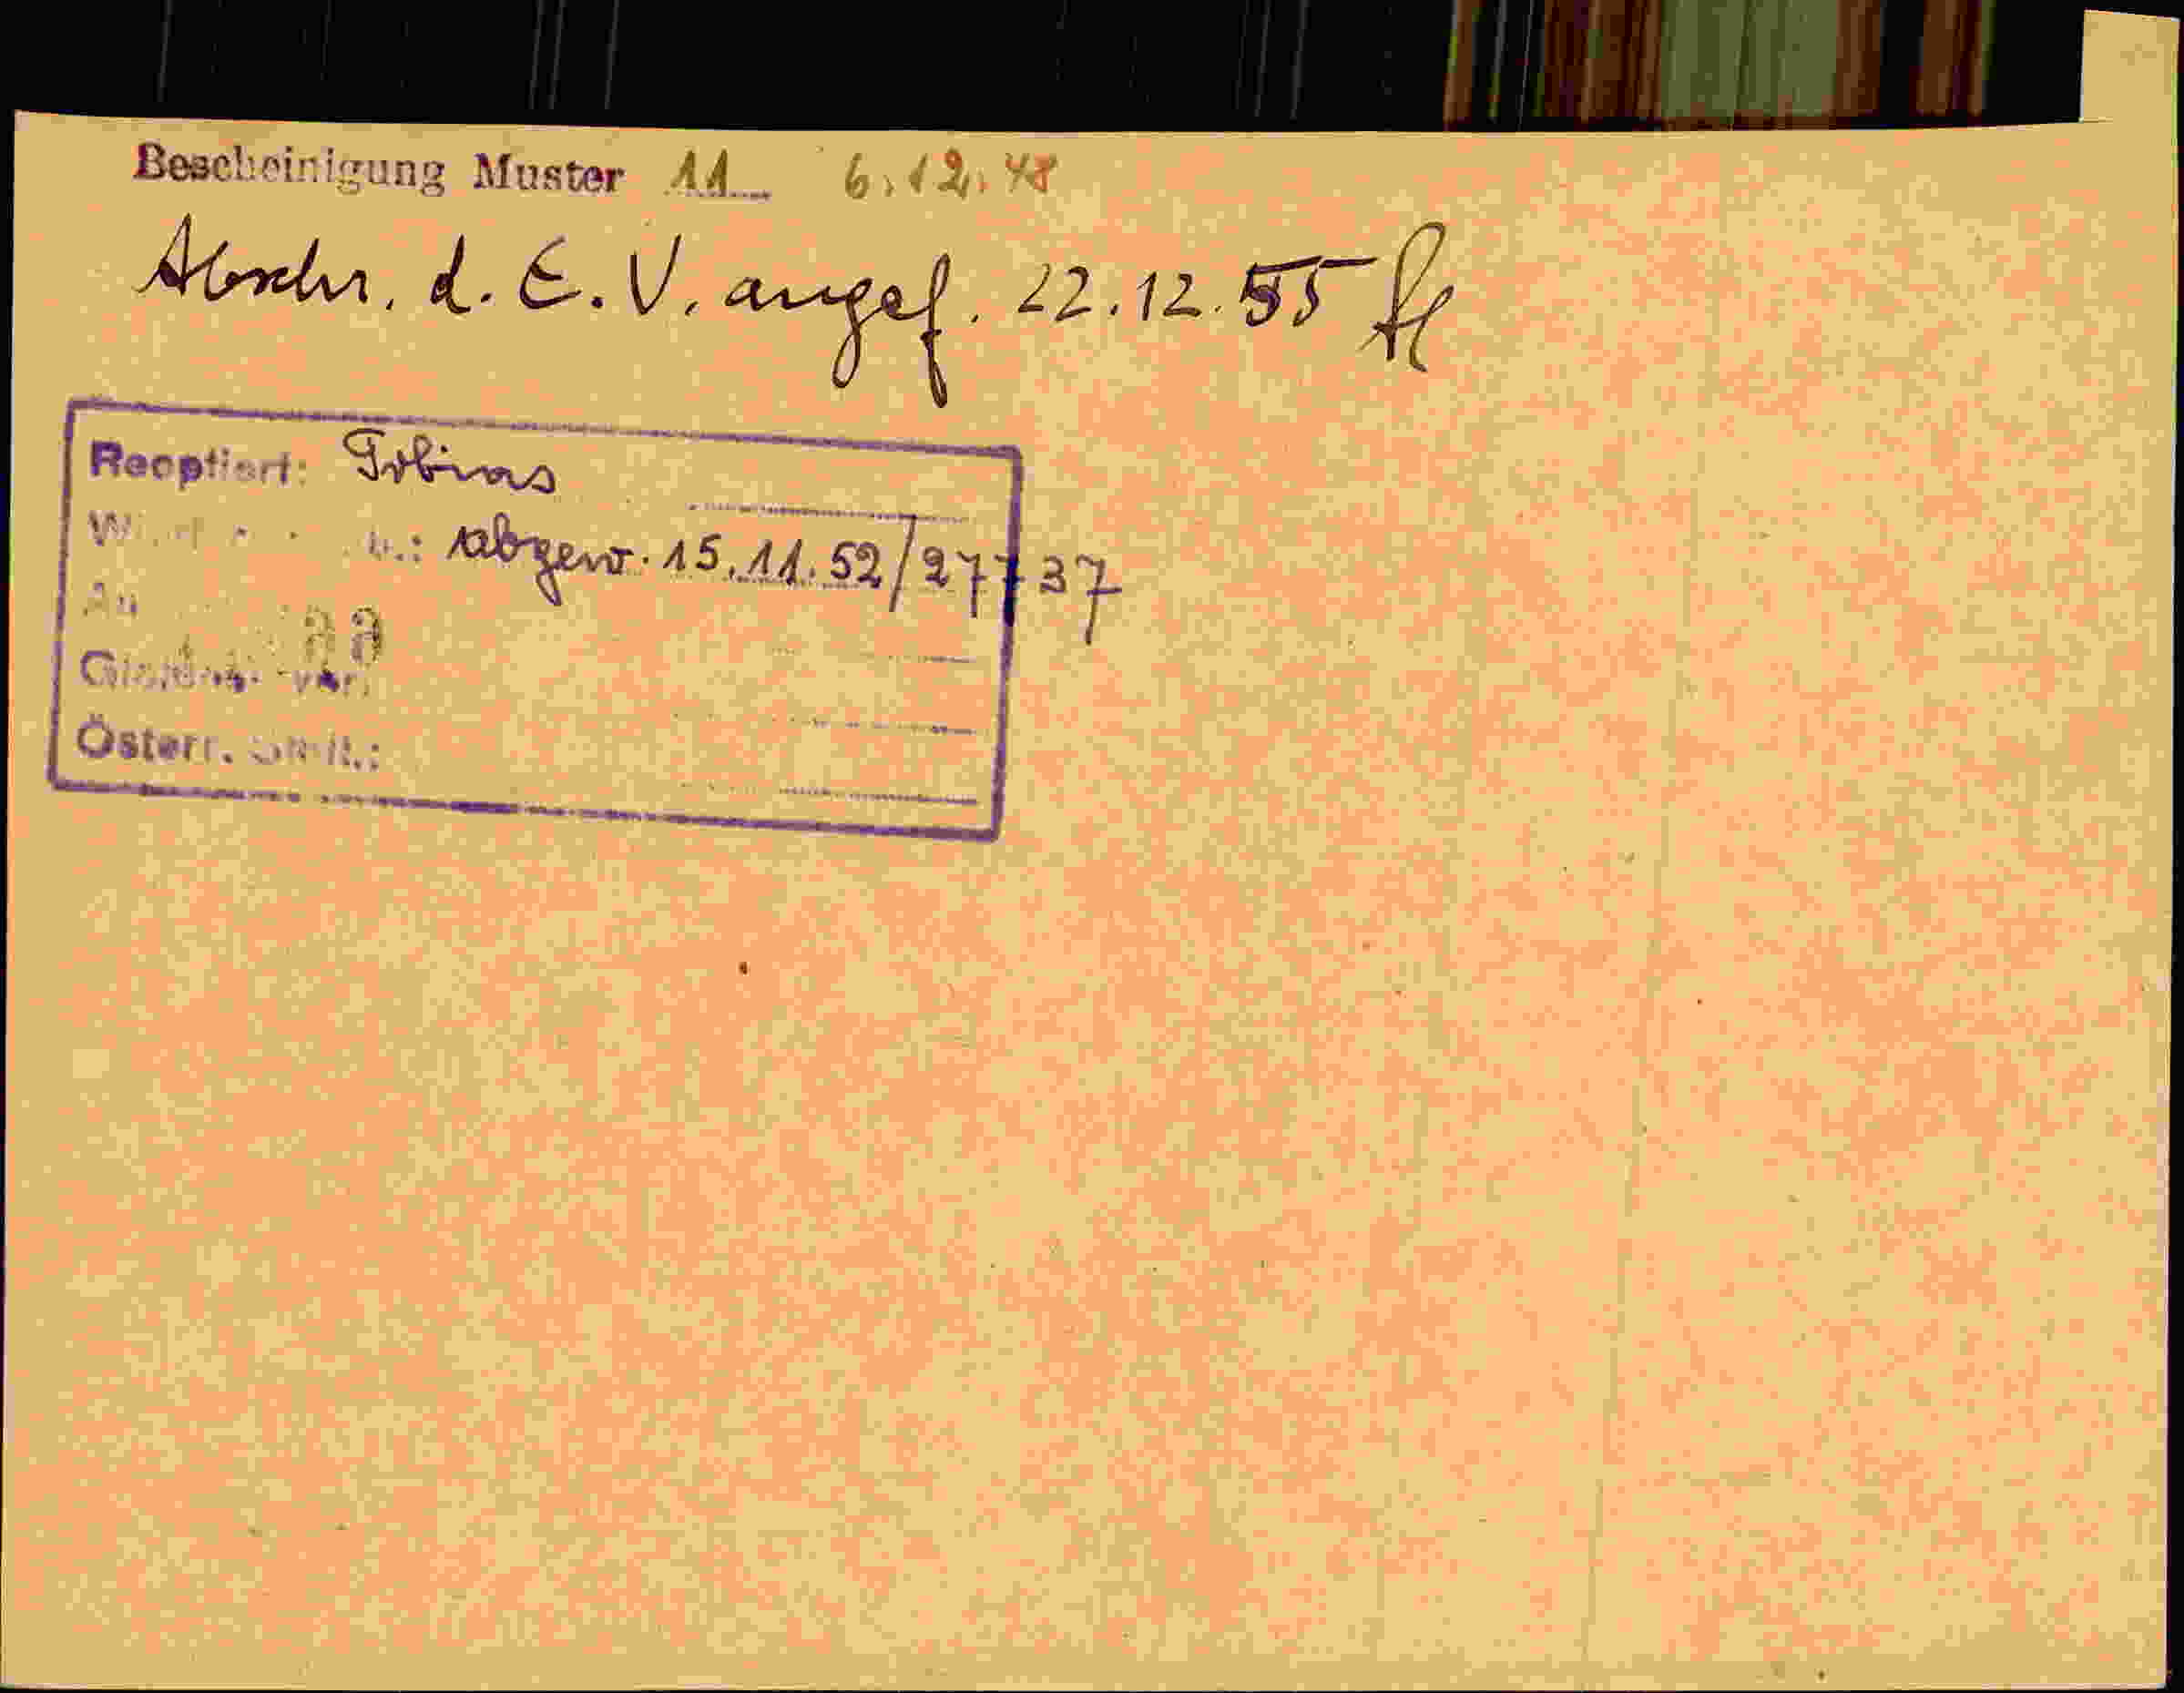 Bescheinigung Muster 11 6.12.48
Abschr. d. E. V. angef. 22.12.55
Reoptiert: Tobias
abgew. 15.11.52/27737
Österr.